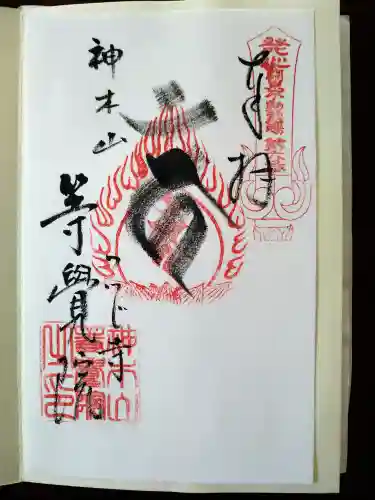 奉拝
神木山
つつじ寺
等覺院
神木山
等覺院
之印